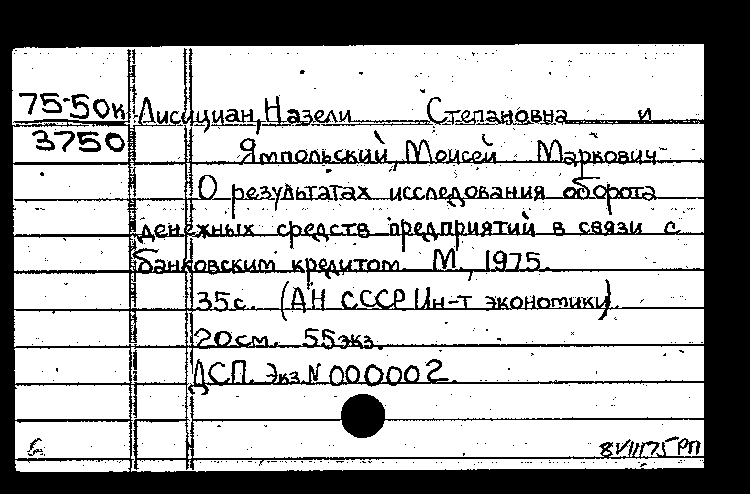 75-50к Лисициан, Назели Степановна и
3750 Ямпольский, Моисей Маркович
О результатах исследования оборота
денежных средств предприятий в связи с
банковским кредитом. М., 1975.
35с. (АН СССР Ин-т экономики).
20см. 55экз.
ДСП. Экз. N 000002.
8VIII75 РП